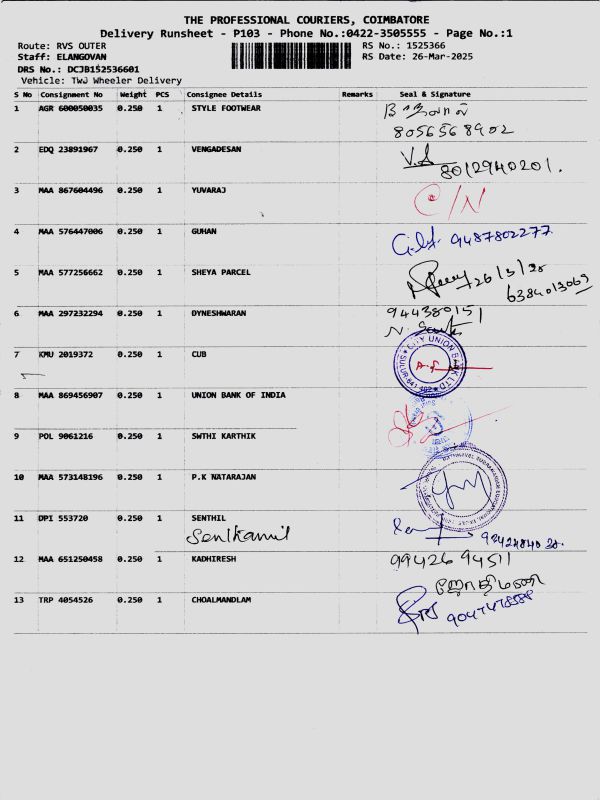 THE PROFESSIONAL COURIERS, COIMBATORE
Delivery Runsheet - P103 - Phone No.:0422-3505555 - Page No.:1
Route: RVS OUTER RS No.: 1525366
Staff: ELANGOVAN RS Date: 26-Mar-2025
DRS No.: DCJB152536601
Vehicle: TwJ Wheeler Delivery
S No Consignment No Weight PCS Consignee Details Remarks Seal & Signature
1 AGR 600050035 0.250 1 STYLE FOOTWEAR
8056568902
2 EDQ 23891967 0.250 1 VENGADESAN V.S
8012940201.
3 MAA 867604496 0.250 1 YUVARAJ C/N
4 MAA 576447006 0.250 1 GUHAN 9487802277
5 MAA 577256662 0.250 1 SHEYA PARCEL 26/3/25
6384013069
6 MAA 297232294 0.250 1 DYNESHWARAN 944380151
7 KMU 2019372 0.250 1 CUB CITY UNION BANK LTD SULUR-641 402
8 MAA 869456907 0.250 1 UNION BANK OF INDIA
9 POL 9061216 0.250 1 SWTHI KARTHIK
10 MAA 573148196 0.250 1 P.K NATARAJAN
11 DPI 553720 0.250 1 SENTHIL
Senlkamil
12 MAA 651250458 0.250 1 KADHIRESH 99426 94511
ஜோதிமணி
13 TRP 4054526 0.250 1 CHOALMANDLAM